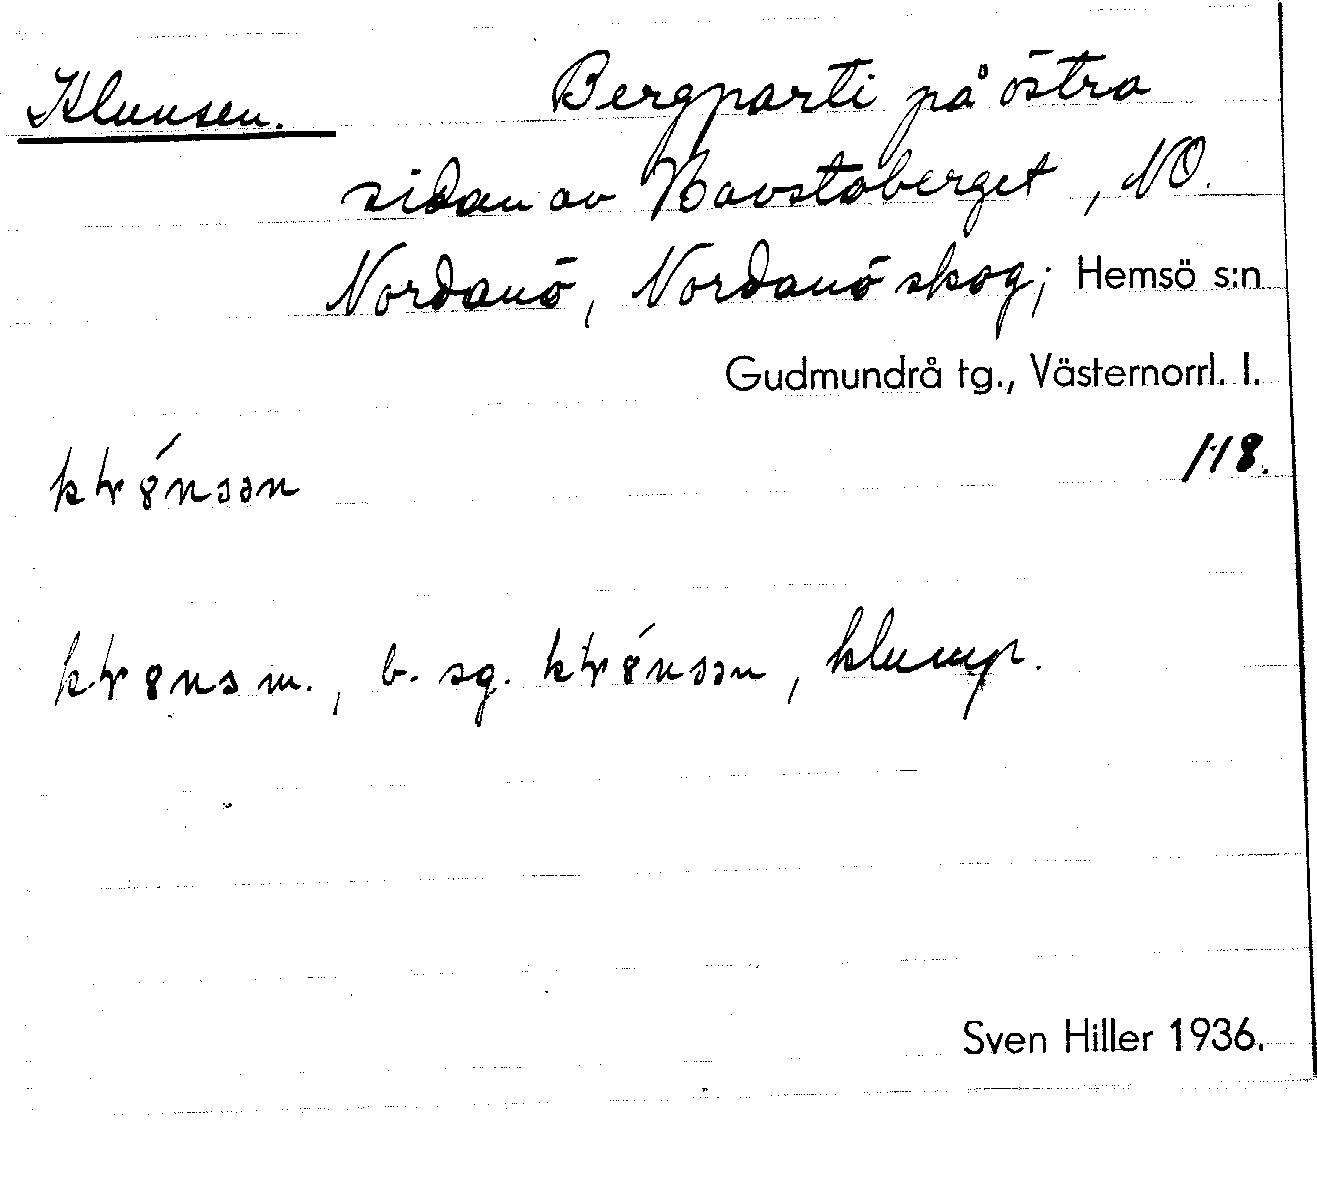 Klunsen. Bergparti på östra
sidan av Bavstaberget, NO.
Nordanö, Nordanö skog; Hemsö s:n
Gudmundrå tg., Västernorrl. l.
118.
m., b. sg. , klump.
Sven Hiller 1936.